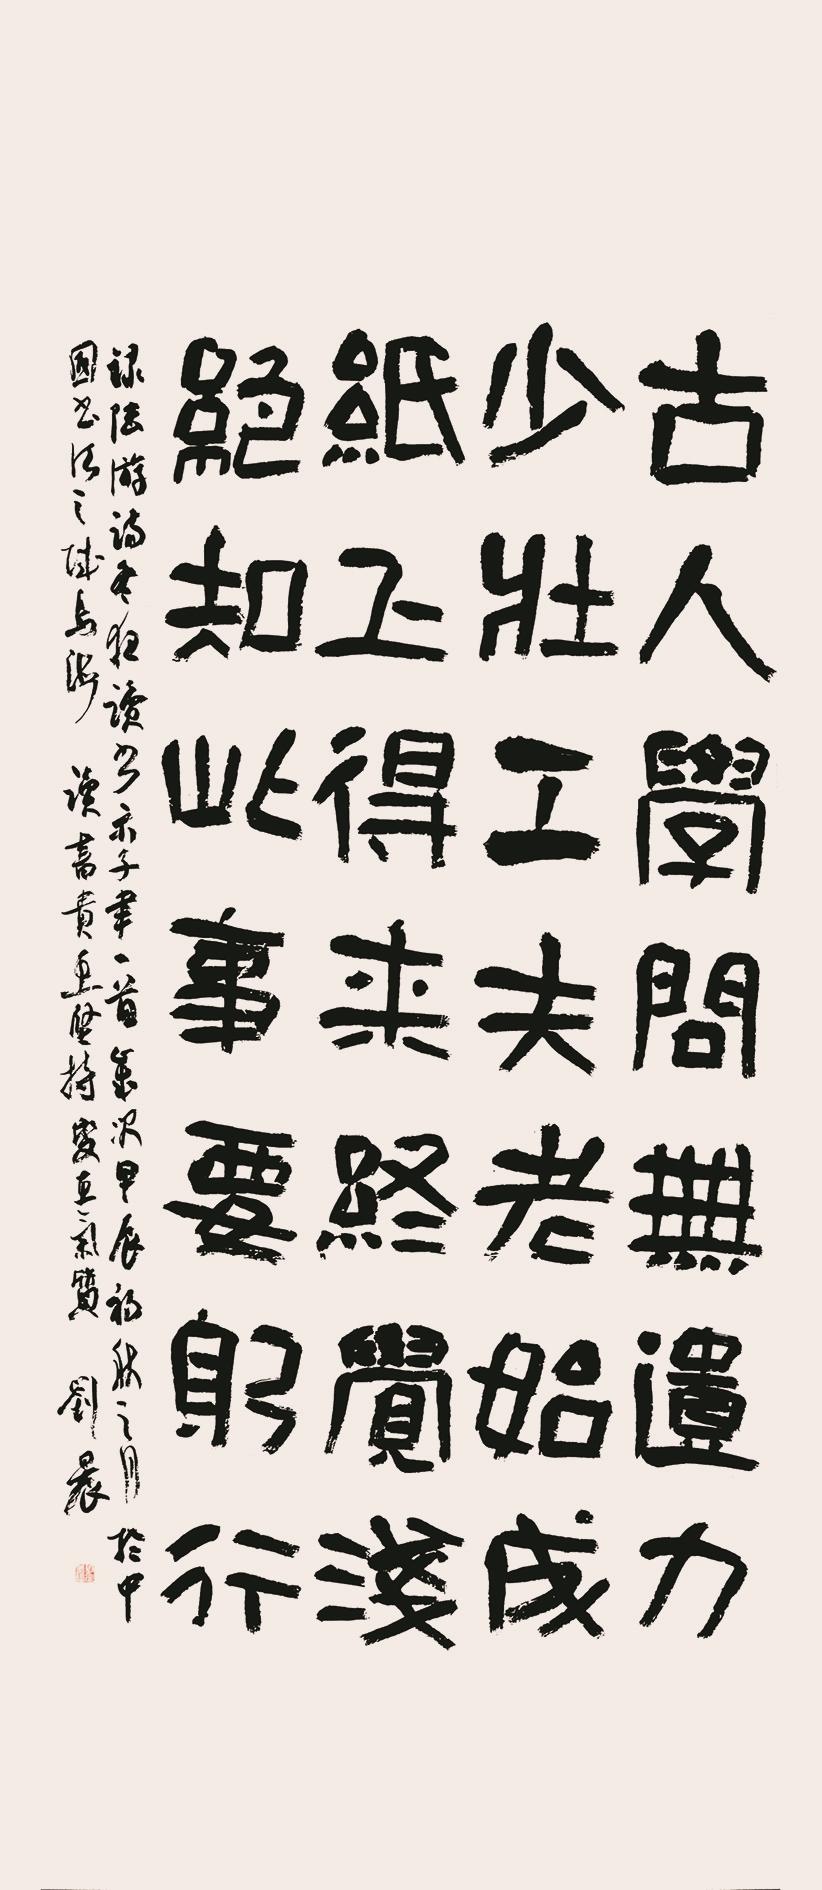 古人學問無遺力
少壯工夫老始成
紙上得来終覺淺
絕知此事要躬行
录陆游诗冬夜讀书示子聿一首歲次甲辰初秋之月於中
國书法之城乌海 读書貴在堅持 變在氣質 劉晨